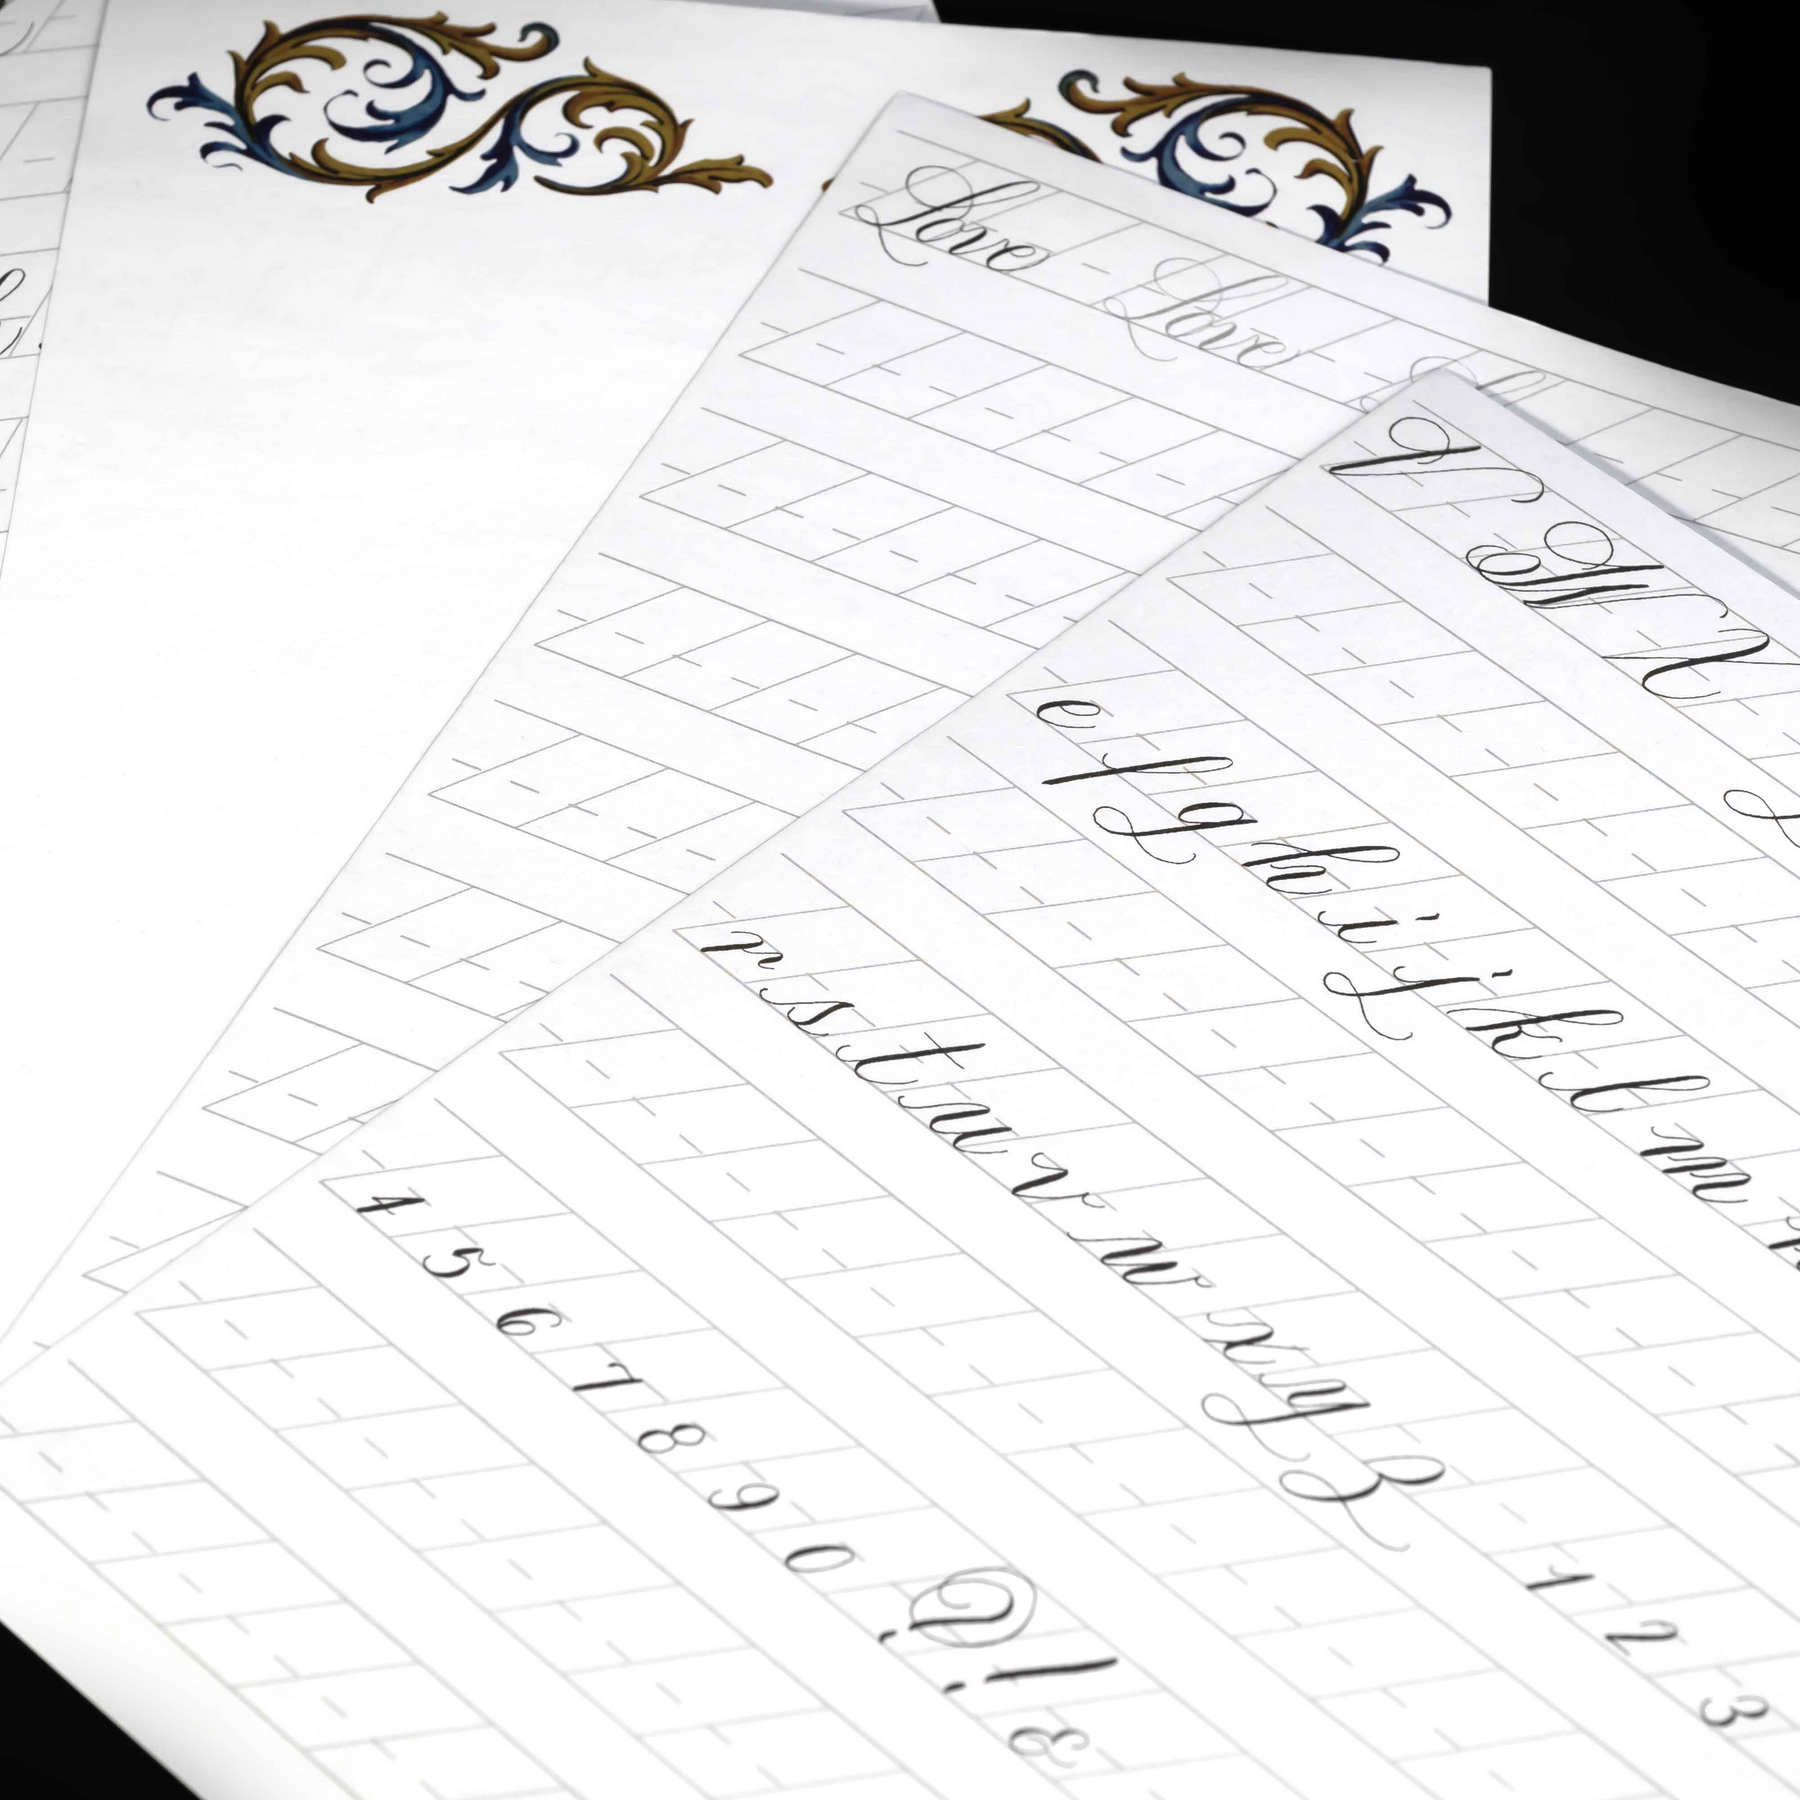 Love - Love
V W X
e f g h i j k l m
r s t u v w x y z 1 2 3
4 5 6 7 8 9 0 ? ! &